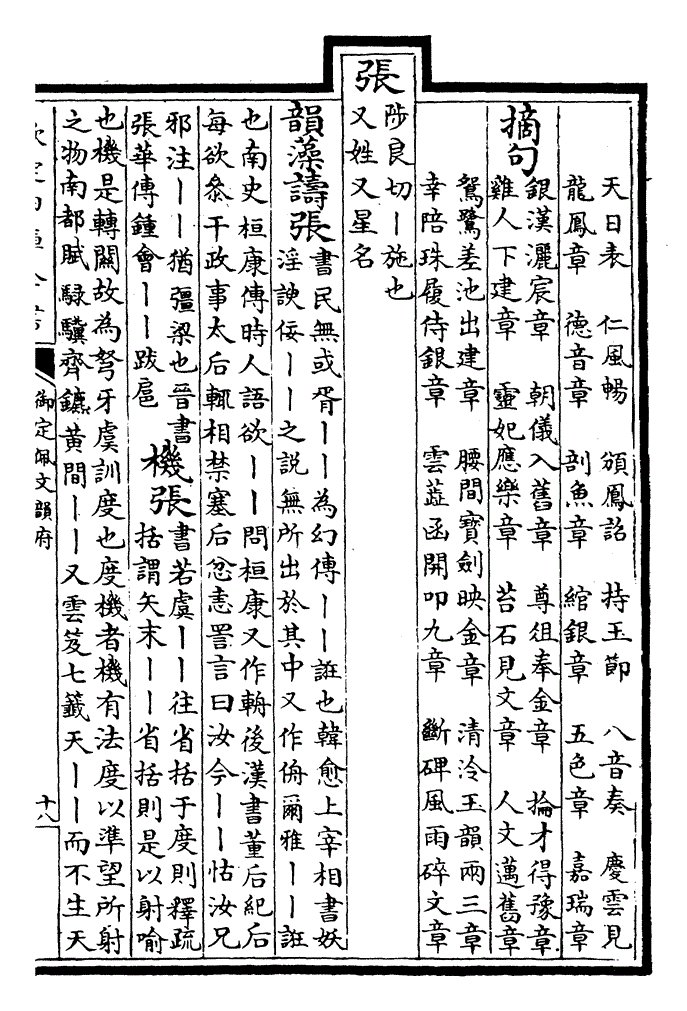 天日表　仁風暢　頒鳳詔　持玉節　八音奏　慶雲見
龍鳳章　德音章　剖魚章　綰銀章　五色章　嘉瑞章
摘句
銀漢灑宸章　朝儀入舊章　尊俎奉金章　掄才得豫章
雞人下建章　靈妃應樂章　苔石見文章　人文邁舊章
鴛鷺差池出建章　腰間寶劍映金章　清泠玉韻兩三章
幸陪珠履侍銀章　雲蕋函開叩九章　斷碑風雨碎文章
張
陟良切丨施也
又姓又星名
韻藻
譸張
書民無或胥丨丨為幻傳丨丨誑也韓愈上宰相書妖
淫諛佞丨丨之説無所出於其中又作侜爾雅丨丨誑
也南史桓康傳時人語欲丨丨問桓康又作輈後漢書董后紀后
每欲叅干政事太后輒相禁塞后忿恚詈言曰汝今丨丨怙汝兄
邪注丨丨猶彊梁也晉書
張華傳鍾會丨丨跋扈
機張
書若虞丨丨往省括于度則釋疏
括謂矢末丨丨省括則是以射喻
也機是轉關故為弩牙虞訓度也度機者機有法度以準望所射
之物南都賦騄驥齊鑣黄間丨丨又雲笈七籤天丨丨而不生天
御定佩文韻府
十八